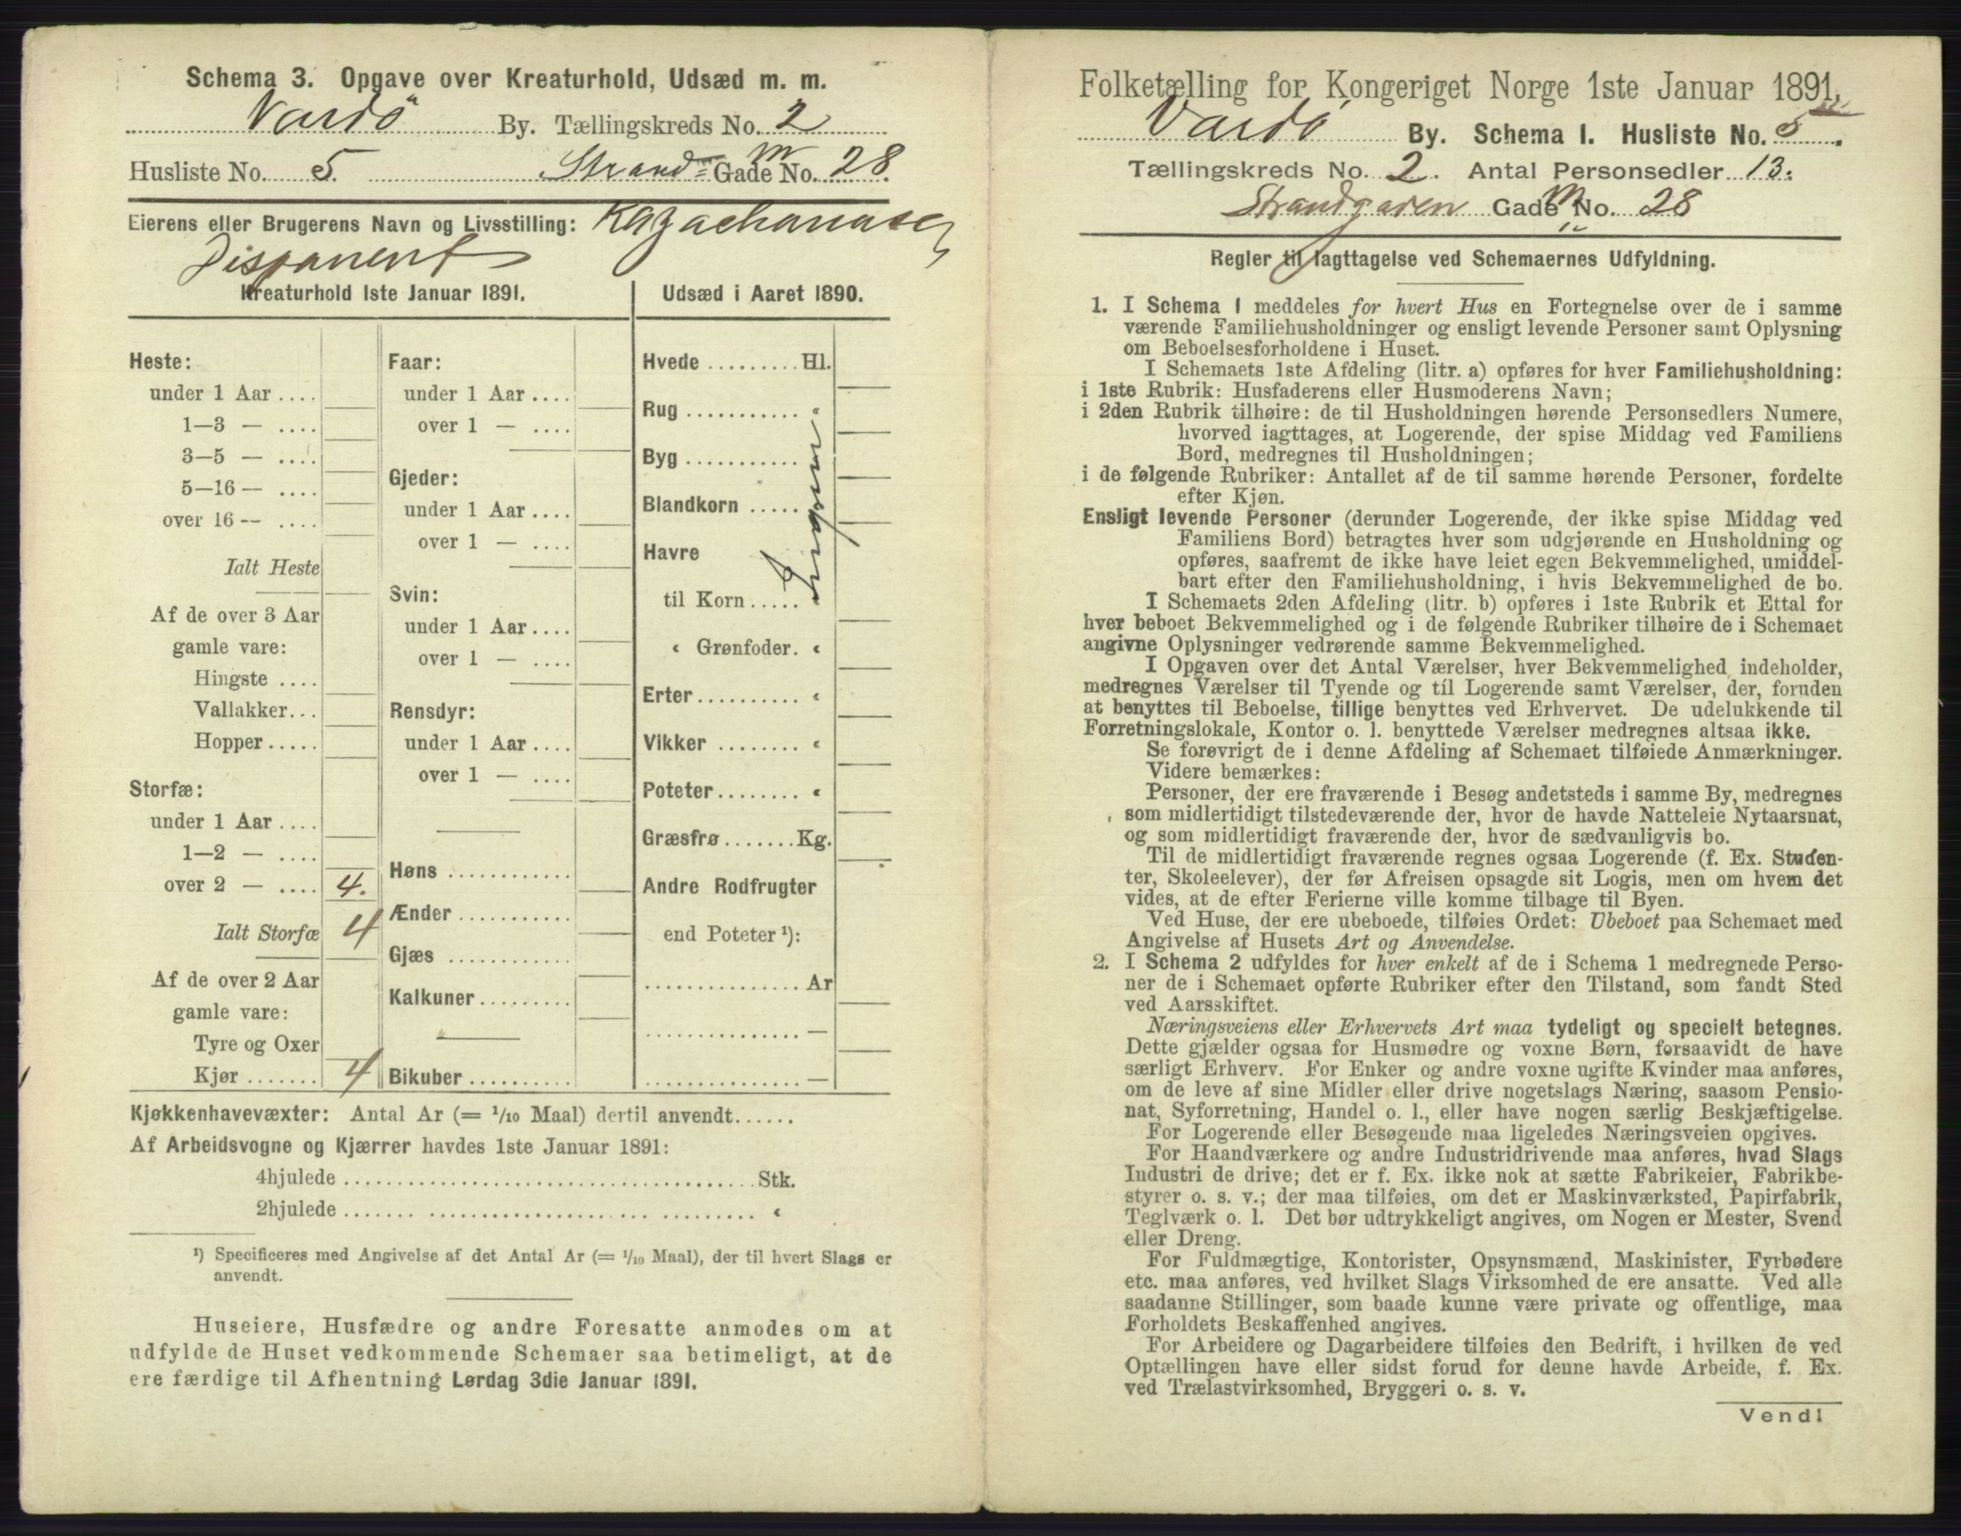 Schema 3. Opgave over Kreaturhold, Udsæd m. m.
Vardö By. Tællingskreds No. 2
Husliste No. 5. Strand Gade No. 28.
Eierens eller Brugerens Navn og Livsstilling:
Disponent
Kreaturhold 1ste Januar 1891.
Heste:
under 1 Aar ....
1—3 — ....
3—5 — ....
5—16 — ....
over 16 — ....
Ialt Heste
Af de over 3 Aar
gamle vare:
Hingste ....
Vallakker...
Hopper.....
Storfæ:
under 1 Aar ....
1—2 — ....
over 2 — .... 4.
Ialt Storfæ 4
Af de over 2 Aar
gamle vare:
Tyre og Oxer
Kjør ....... 4
Faar:
under 1 Aar ....
over 1 — ....
Gjeder:
under 1 Aar....
over 1 — ....
Svin:
under 1 Aar....
over 1 — ....
Rensdyr:
under 1 Aar....
over 1 — ....
Høns ............
Ænder ...........
Gjæs ............
Kalkuner.........
Bikuber ..........
Udsæd i Aaret 1890.
Hvede ......... Hl.
Rug ........... "
Byg ...........
Blandkorn .....
Havre
til Korn ..... "
" Grønfoder. "
Erter.......... "
Vikker ........ "
Poteter........ "
Græsfrø .......Kg.
Andre Rodfrugter
end Poteter ¹):
............... Ar
............... —
............... —
Ingen
Kjøkkenhavevæxter: Antal Ar (= 1/10 Maal) dertil anvendt......
Af Arbeidsvogne og Kjærrer havdes 1ste Januar 1891:
4hjulede ....................................... Stk.
2hjulede ....................................... "
¹) Specificeres med Angivelse af det Antal Ar (= 1/10 Maal), der til hvert Slags er
anvendt.
Huseiere, Husfædre og andre Foresatte anmodes om at
udfylde de Huset vedkommende Schemaer saa betimeligt, at de
ere færdige til Afhentning Lørdag 3die Januar 1891.
Folketælling for Kongeriget Norge 1ste Januar 1891.
Vardö By. Schema I. Husliste No. 5
Tællingskreds No. 2. Antal Personsedler 13.
Strandgaden Gade No. 28
Regler til Iagttagelse ved Schemaernes Udfyldning.
1. I Schema 1 meddeles for hvert Hus en Fortegnelse over de i samme
værende Familiehusholdninger og ensligt levende Personer samt Oplysning
om Beboelsesforholdene i Huset.
I Schemaets 1ste Afdeling (litr. a) opføres for hver Familiehusholdning:
i 1ste Rubrik: Husfaderens eller Husmoderens Navn;
i 2den Rubrik tilhøire: de til Husholdningen hørende Personsedlers Numere,
hvorved iagttages, at Logerende, der spise Middag ved Familiens
Bord, medregnes til Husholdningen;
i de følgende Rubriker: Antallet af de til samme hørende Personer, fordelte
efter Kjøn.
Ensligt levende Personer (derunder Logerende, der ikke spise Middag ved
Familiens Bord) betragtes hver som udgjørende en Husholdning og
opføres, saafremt de ikke have leiet egen Bekvemmelighed, umiddel-
bart efter den Familiehusholdning, i hvis Bekvemmelighed de bo.
I Schemaets 2den Afdeling (litr. b) opføres i 1ste Rubrik et Ettal for
hver beboet Bekvemmelighed og i de følgende Rubriker tilhøire de i Schemaet
angivne Oplysninger vedrørende samme Bekvemmelighed.
I Opgaven over det Antal Værelser, hver Bekvemmelighed indeholder,
medregnes Værelser til Tyende og til Logerende samt Værelser, der, foruden
at benyttes til Beboelse, tillige benyttes ved Erhvervet. De udelukkende til
Forretningslokale, Kontor o. l. benyttede Værelser medregnes altsaa ikke.
Se forøvrigt de i denne Afdeling af Schemaet tilføiede Anmærkninger.
Videre bemærkes:
Personer, der ere fraværende i Besøg andetsteds i samme By, medregnes
som midlertidigt tilstedeværende der, hvor de havde Natteleie Nytaarsnat,
og som midlertidigt fraværende der, hvor de sædvanligvis bo.
Til de midlertidigt fraværende regnes ogsaa Logerende (f. Ex. Studen-
ter, Skoleelever), der før Afreisen opsagde sit Logis, men om hvem det
vides, at de efter Ferierne ville komme tilbage til Byen.
Ved Huse, der ere ubeboede, tilføies Ordet: Ubeboet paa Schemaet med
Angivelse af Husets Art og Anvendelse.
2. I Schema 2 udfyldes for hver enkelt af de i Schema 1 medregnede Perso-
ner de i Schemaet opførte Rubriker efter den Tilstand, som fandt Sted
ved Aarsskiftet.
Næringsveiens eller Erhvervets Art maa tydeligt og specielt betegnes.
Dette gjælder ogsaa for Husmødre og voxne Børn, forsaavidt de have
særligt Erhverv. For Enker og andre voxne ugifte Kvinder maa anføres,
om de leve af sine Midler eller drive nogetslags Næring, saasom Pensio-
nat, Syforretning, Handel o. l., eller have nogen særlig Beskjæftigelse.
For Logerende eller Besøgende maa ligeledes Næringsveien opgives.
For Haandværkere og andre Industridrivende maa anføres, hvad Slags
Industri de drive; det er f. Ex. ikke nok at sætte Fabrikeier, Fabrikbe-
styrer o. s. v.; der maa tilføies, om det er Maskinværksted, Papirfabrik,
Teglværk o. l. Det bør udtrykkeligt angives, om Nogen er Mester, Svend
eller Dreng.
For Fuldmægtige, Kontorister, Opsynsmænd, Maskinister, Fyrbødere
etc. maa anføres, ved hvilket Slags Virksomhed de ere ansatte. Ved alle
saadanne Stillinger, som baade kunne være private og offentlige, maa
Forholdets Beskaffenhed angives.
For Arbeidere og Dagarbeidere tilføies den Bedrift, i hvilken de ved
Optællingen have eller sidst forud for denne havde Arbeide, f. Ex.
ved Trælastvirksomhed, Bryggeri o. s. v.
Vend!